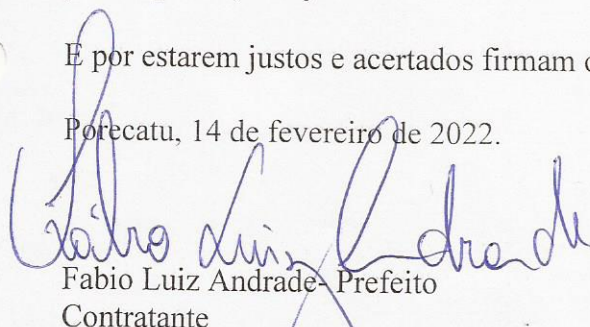 E por estarem justos e acertados firmam
Porecatu, 14 de fevereiro de 2022.
Fábio Luiz Andrade
Fabio Luiz Andrade- Prefeito
Contratante